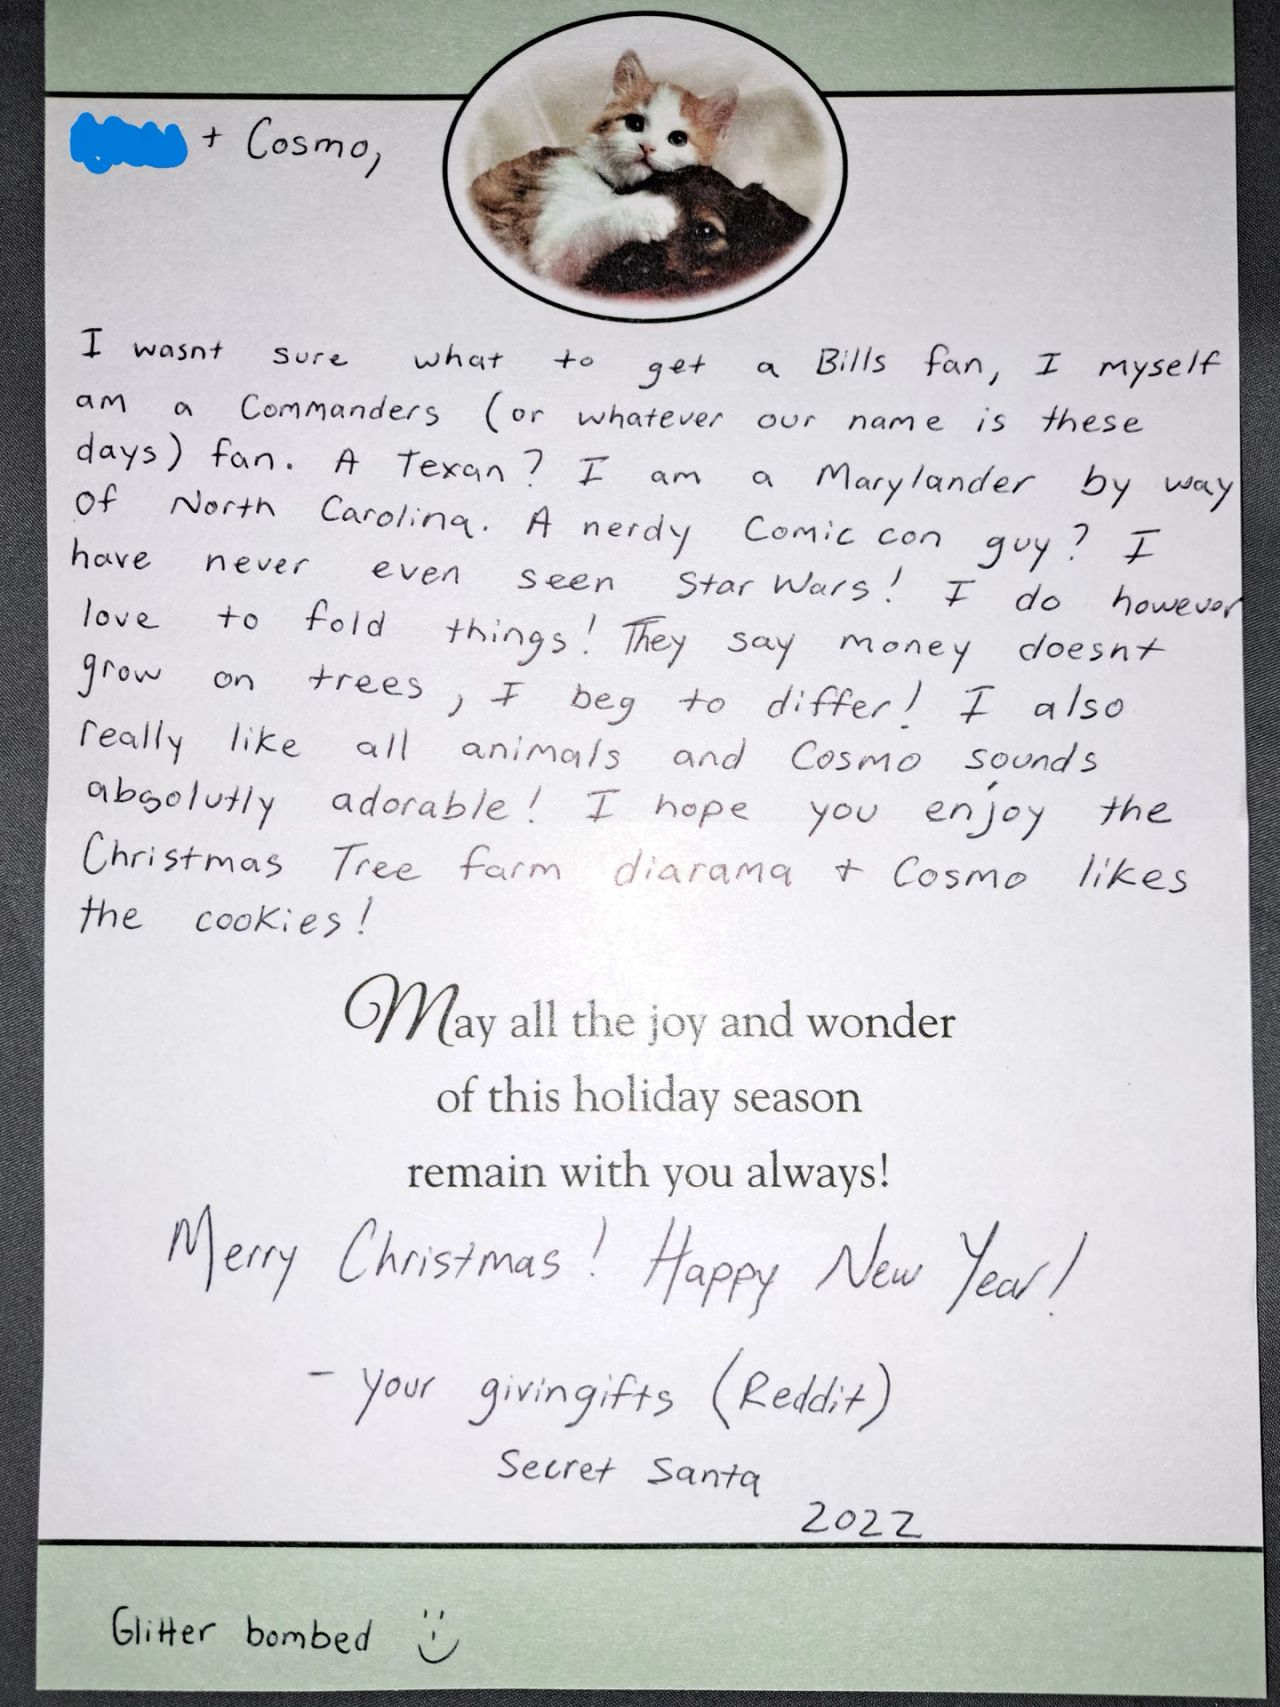 + Cosmo,
I wasnt sure what to get a Bills fan, I myself
am a Commanders (or whatever our name is these
days) fan. A Texan? I am a Marylander by way
of North Carolina. A nerdy Comic con guy? I
have never even seen Star Wars! I do however
love to fold things! They say money doesnt
grow on trees, I beg to differ! I also
really like all animals and Cosmo sounds
absolutly adorable! I hope you enjoy the
Christmas Tree farm diarama + Cosmo likes
the cookies!
May all the joy and wonder
of this holiday season
remain with you always!
Merry Christmas! Happy New Year!
- your givingifts (Reddit)
Secret Santa
2022
Glitter bombed :)